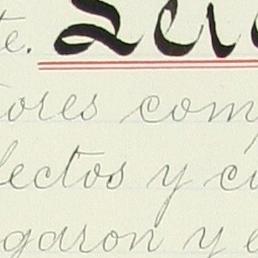 te. Lei
tores com
fectos y cu
garon y e